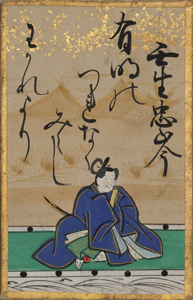 壬生忠岑
有明の
つれなく
みえし
わかれより